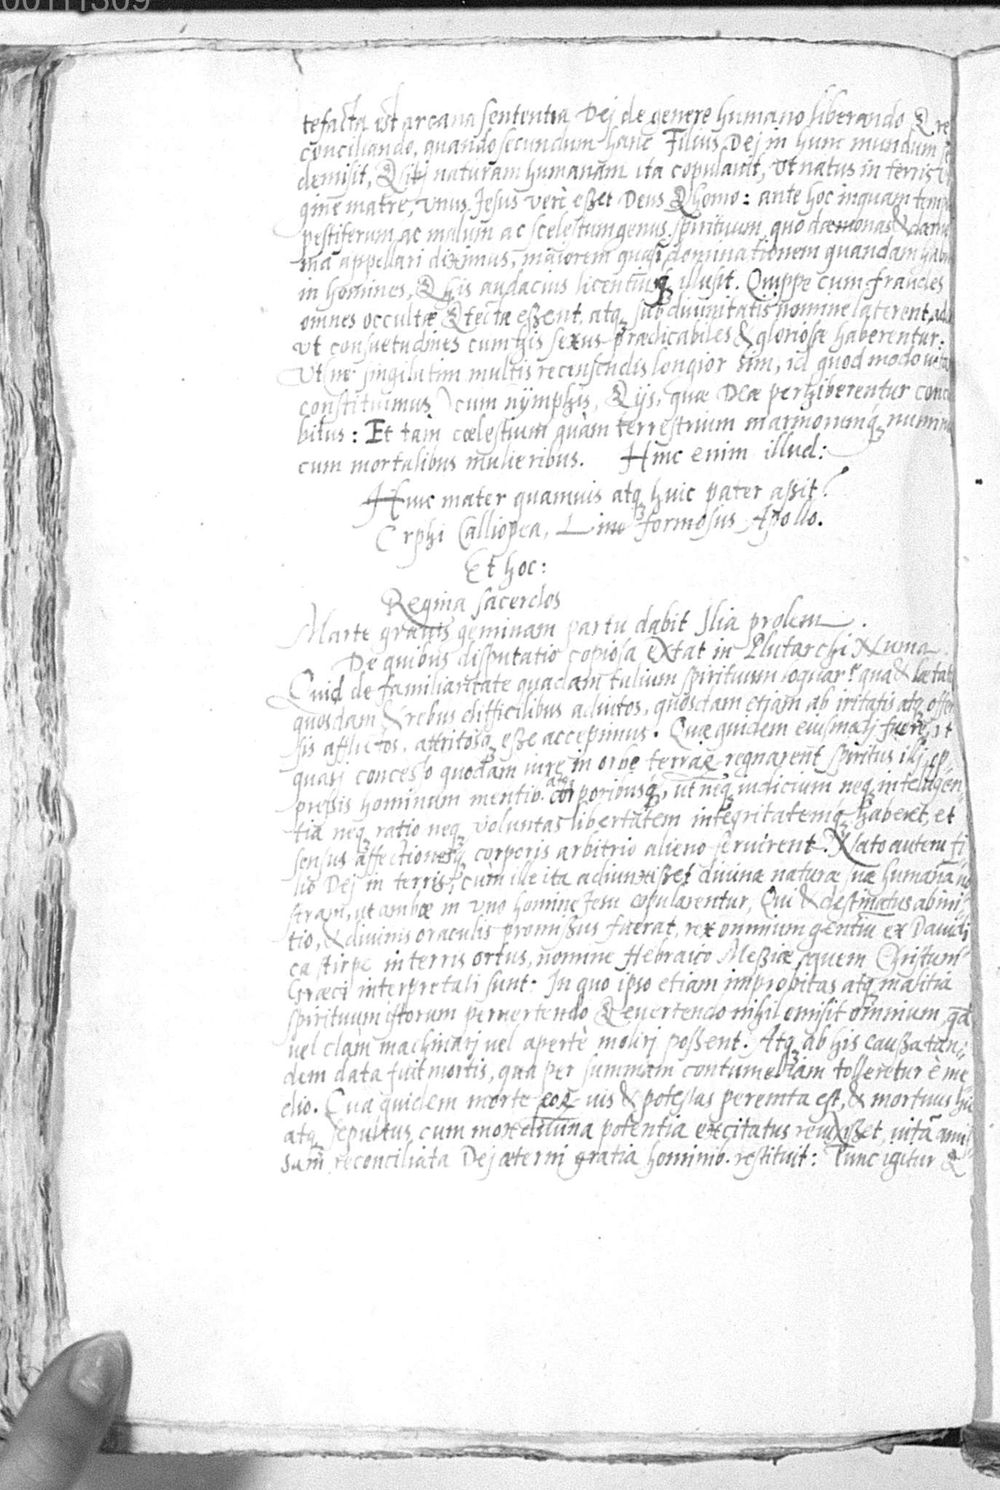 00111309
tefacta est arcana sententia Dej de genere humano liberando & re
conciliando, quando secundum hanc Filius Dej in hunc mundum se
demisit, & sibj naturam humanam ita copulavit, ut natus in terris Vir
gine matre, vnus Jesus verè eßet Deus & homo: ante hoc inquam temp
pestiferum ac malum ac scelestum genus spirituum, quo dæmonas & dæmo
nia appellari diximus, maiorem quasi dominationem quandam habu
in homines, & his audacius licentiusq illusit. Quippe cum fraudes
omnes occultæ & tectæ eßent, atq sub divinitatis nomine laterent, ade
vt consuetudines cum his sexus prædicabiles & gloriosæ haberentur:
Ut ne singilatim multis recensendis longior sim, id quod modo
constituimus) cum nymphis, & ijs, quæ Deæ perhiberentur concu
bitus: Et tam cœlestium quàm terrestrium marmorumq numinu
cum mortalibus mulieribus. Hinc enim illud:
Huic mater quamuis atq huic pater aßit:
Orphi Calliopea, Lino formosus Apollo.
Et hoc:
Regina sacerdos
Marte gravis geminam partu dabit Ilia prolem.
De quibus disputatio copiosa extat in Plutarchi Numa.
Quid de familiaritate quadam talium spirituum loquar? qua & lætat
quosdam & rebus difficilibus adiutos, quosdam etiam ab iritatis atq offen
sis afflictos, attritosq eße accepimus. Quæ quidem eiusmodj fuere, ut
quasi conceßo quodam iure in orbe terraꝝ regnarent spiritus illj, op-
preßis hominum mentib. atq corporibusq, ut neq iudicium neq intelligen-
tia neq ratio neq voluntas libertatem integritatemq haberet, et
sensus affectionesq corporis arbitrio alieno servirent. Nato autem fi
lio Dej in terris, cum ille ita adiunxißet divinæ naturæ suæ humanā no
stram, ut ambæ in uno homine tem copularentur, Qui & destinatus ab ini-
tio, & divinis oraculis promißus fuerat, rex omnium gentiū ex Davidj
ca stirpe in terris ortus, nomine Hebraico Meßiæ, quem Christum
Græci interpretati sunt: In quo ipso etiam improbitas atq malitia
spirituum istorum pervertendo & evertendo nihil omisit omnium, qd
vel clam machinarj vel apertè molirj poßent. Atq ab his causa tan-
dem data fuit mortis, qua per summam contumeliam tolleretur è me
dio. Qua quidem morte eoꝝ uis & potestas peremta est, & mortuus hic
atq sepultus, cum mox divina potentia excitatus revixißet, vitā amis
sam reconciliata Dej æterni gratia hominib. restituit: Tunc igitur &